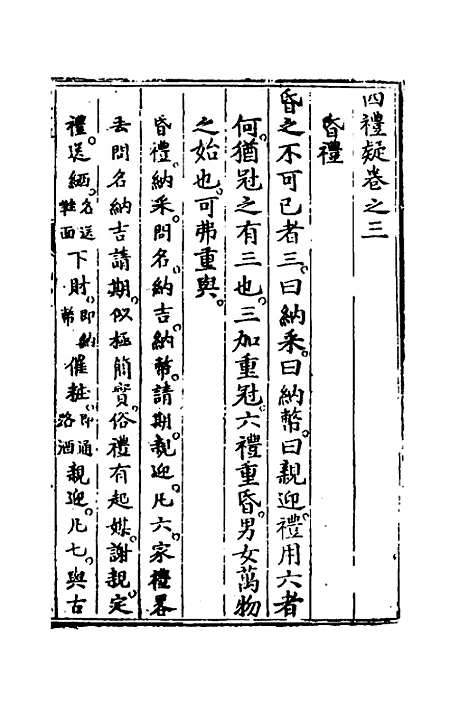 四禮疑卷之三
昏禮
昏之不可已者三曰納采曰納幣曰親迎禮用六者
何猶冠之有三也三加重冠六禮重昏男女萬物
之始也可弗重與
昏禮納采問名納吉納幣請期親迎凡六家禮畧
去問名納吉請期似極簡實俗禮有起媒謝親定
禮送𦈢名送鞋面下財即納幣催粧即通路酒親迎凡七與古